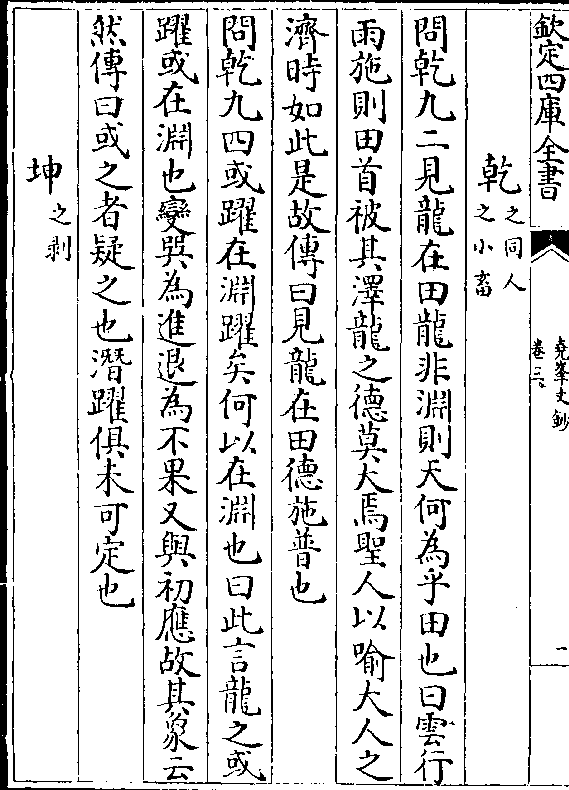 欽定四庫全書
堯峯文鈔
卷三
二
乾之同人
之小畜
問乾九二見龍在田龍非淵則天何為乎田也曰雲行
雨施則田首被其澤龍之德莫大焉聖人以喻大人之
濟時如此是故傳曰見龍在田德施普也
問乾九四或躍在淵躍矣何以在淵也曰此言龍之或
躍或在淵也變巽為進退為不果又與初應故其象云
然傳曰或之者疑之也潛躍俱未可定也
坤之剥